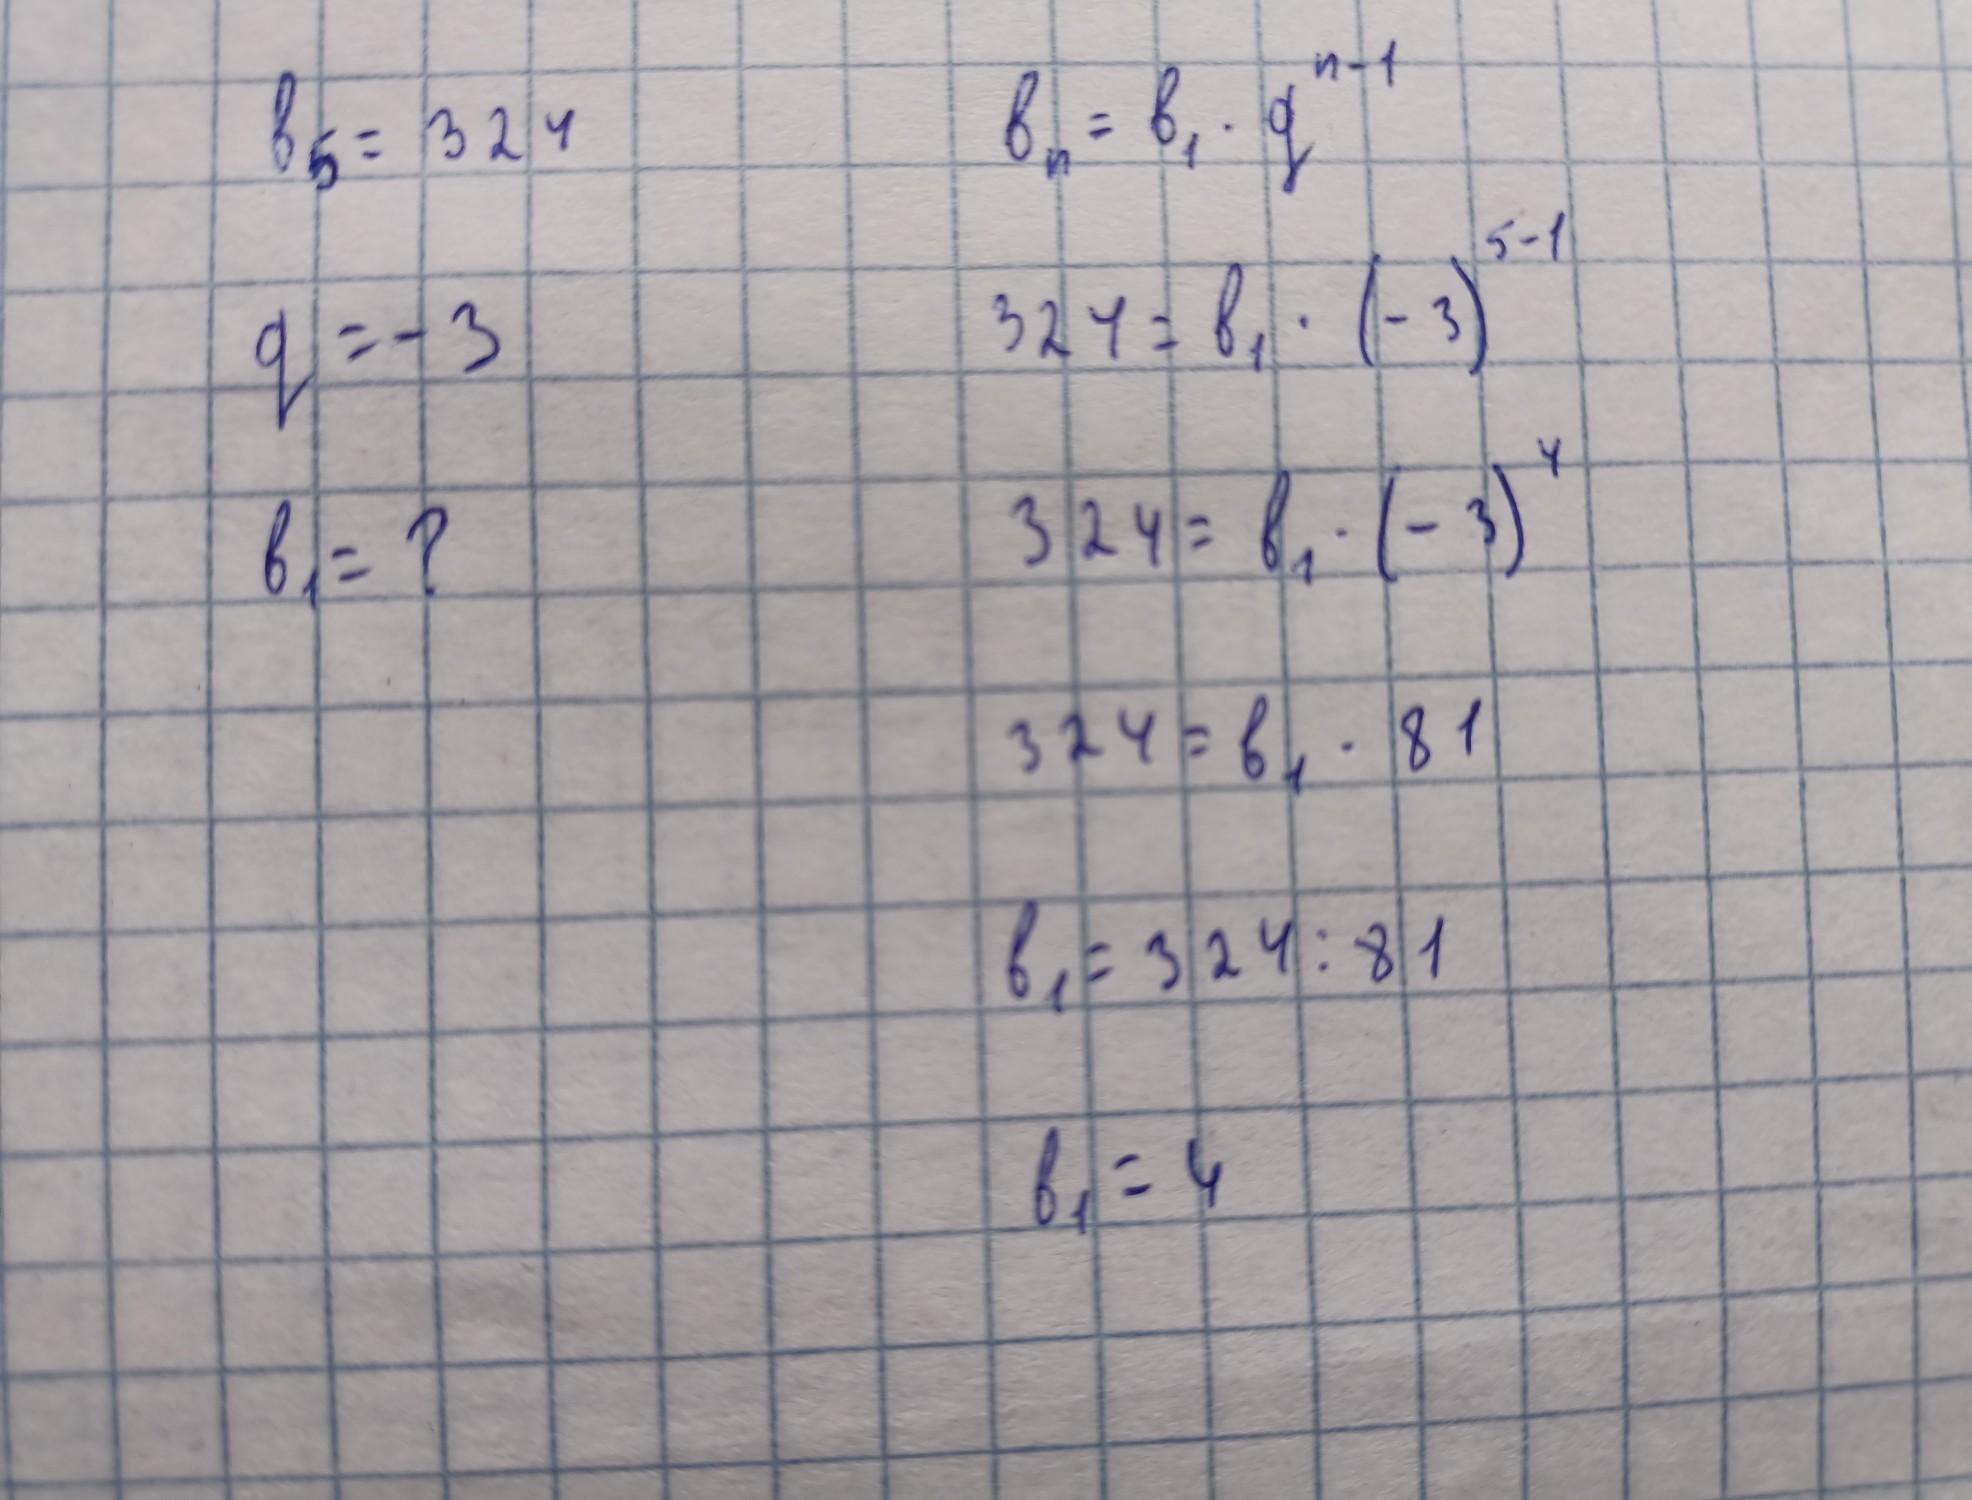 в₅ = 324
q = -3
в₁ = ?
вₙ = в₁ · qⁿ⁻¹
324 = в₁ · (-3)⁵⁻¹
324 = в₁ · (-3)⁴
324 = в₁ · 81
в₁ = 324 : 81
в₁ = 4